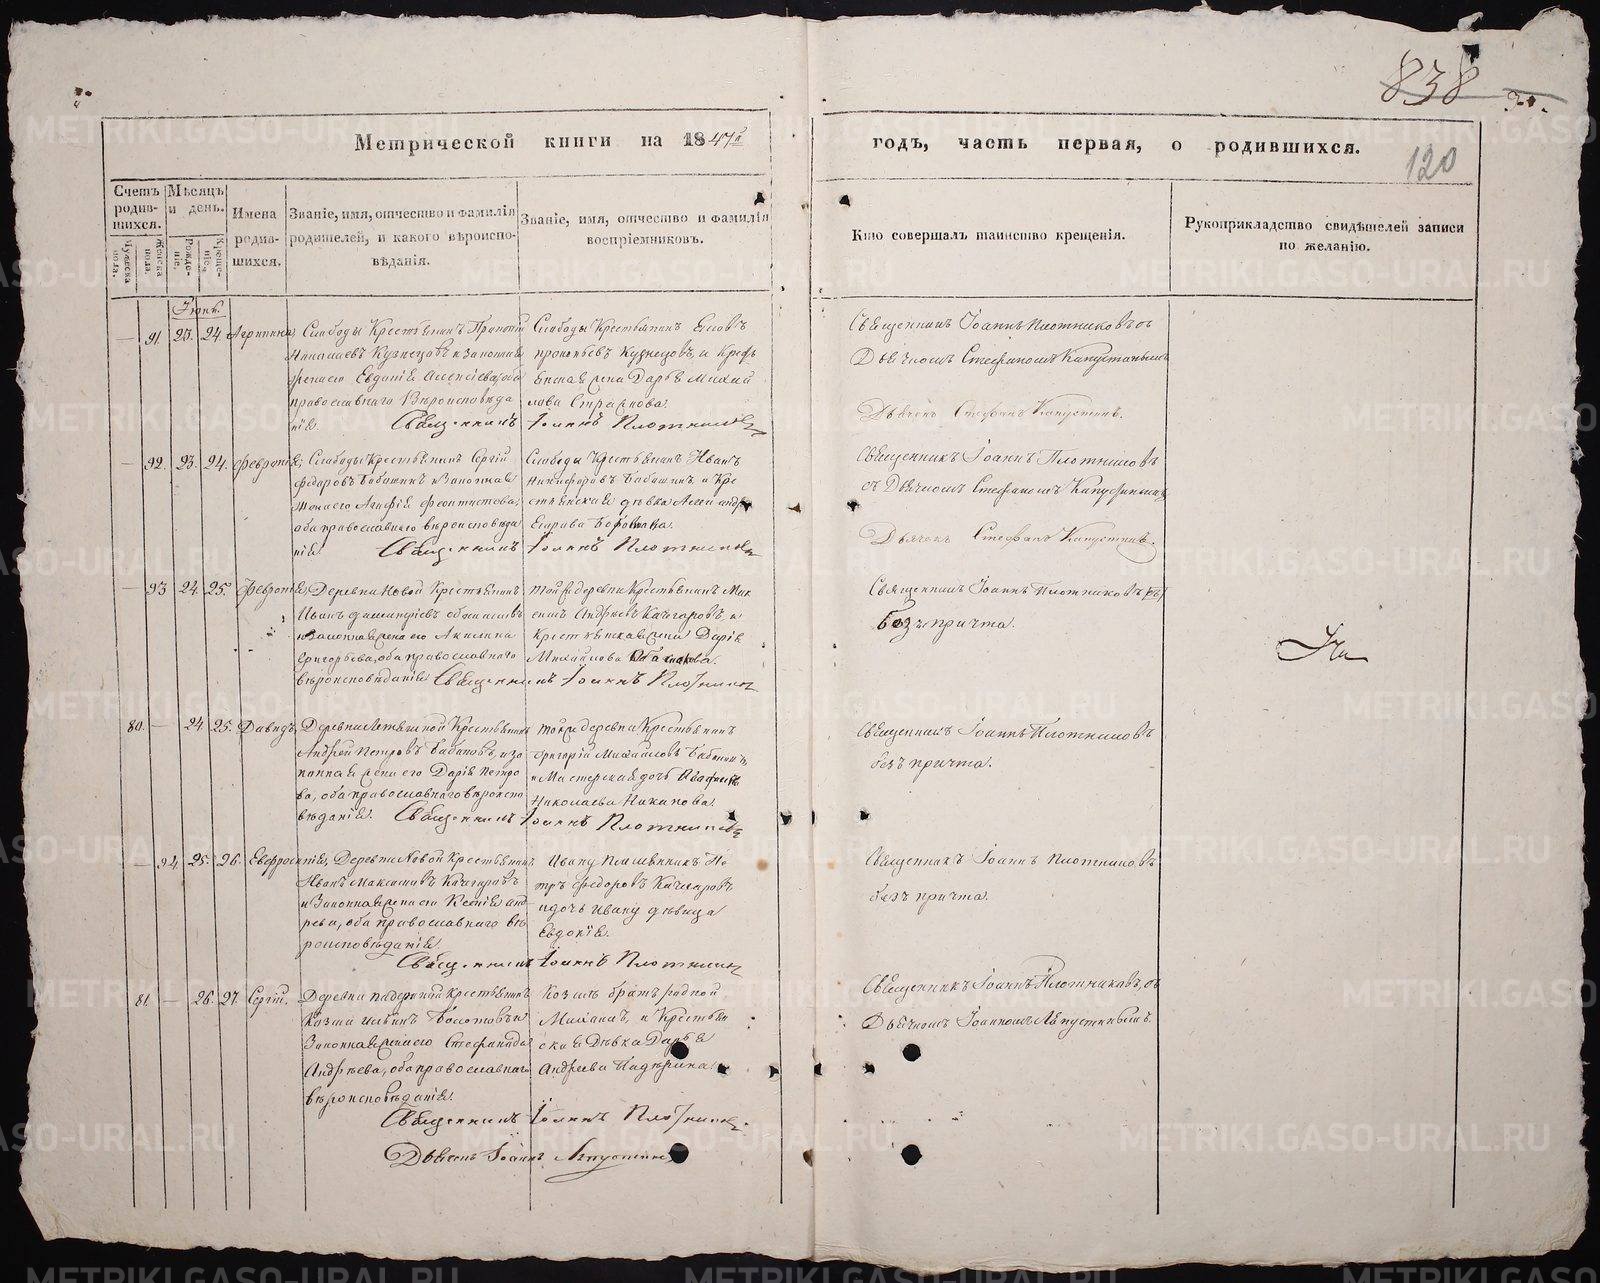 838
120
Метрической книги на 1847й годъ, часть первая, о родившихся.
Счетъ родившихся.
Мужеска пола.
Женска пола.
Мѣсяцъ и день.
Рожденіе.
Крещеніе.
Имена родившихся.
Званіе, имя, отчество и фамилія родителей, и какого вѣроисповѣданія.
Званіе, имя, отчество и фамилія воспріемниковъ.
Кто совершалъ таинство крещенія.
Рукоприкладство свидѣтелей записи по желанію.
Іюнь.
— 91 23. 24. Агрипина,
Слободы Крестьянинъ
Кузнецовъ и законная
жена его Евдокія Алексіева, оба
православнаго Вѣроисповѣда
нія.
Слободы Крестьянинъ
Прокопьевъ Кузнецовъ, и Кресть
янская жена Дарья Михай
лова
Священникъ Іоаннъ Плотниковъ
Священникъ Іоаннъ Плотниковъ съ
Дьячкомъ Стефаномъ Капустинымъ
Дьячекъ Стефанъ Капустинъ.
— 92. 23. 24. Февронія,
Слободы Крестьянинъ Сергій
Федоровъ Бабошинъ и Законная
жена его Агафія Феоктистова,
оба православнаго вѣроисповѣда
нія.
Слободы Крестьянинъ Иванъ
Никифоровъ Бабошинъ, и Кре
стьянская дѣвка
Священникъ Іоаннъ Плотниковъ
Священникъ Іоаннъ Плотниковъ
съ Дьячкомъ Стефаномъ Капустинымъ
Дьячекъ Стефанъ Капустинъ.
— 93 24 25. Февронія,
Деревни Новой Крестьянинъ
Иванъ
и Законная жена его Акилина
Григорьева, оба православнаго
вѣроисповѣданія
той же деревни Крестьянинъ Мак
симъ Андреевъ Качгаровъ, и
Крестьянская жена Дарія
Михайлова
Священникъ Іоаннъ Плотниковъ
Священникъ Іоаннъ Плотниковъ
Безъ причта.
80. — 24 25. Давидъ,
Деревни Крестьянинъ
Андрей Петровъ и за
конная жена его Дарія Петро
ва, оба православнаго вѣроиспо
вѣданія.
той же деревни Крестьянинъ
Григорій Михайловъ
и Мастерская дочь
Николаева
Священникъ Іоаннъ Плотниковъ
Священникъ Іоаннъ Плотниковъ
безъ причта.
— 94 25. 26. Евфросинія,
Деревни Новой Крестьянинъ
Иванъ Максимовъ Качгаровъ
и Законная жена его Ксенія Анд
реева, оба православнаго вѣ
роисповѣданія.
Ивану Племянникъ Пе
тръ Федоровъ Качгаровъ
и дочь Ивану дѣвица
Евдокія.
Священникъ Іоаннъ Плотниковъ
Священникъ Іоаннъ Плотниковъ
безъ причта.
81. — 26. 27. Сергій.
Деревни Крестьянинъ
Козма Ильинъ Болотовъ и
Законная жена его Стефанида
Андреева, оба православнаго
вѣроисповѣданія.
Козмѣ братъ родной
Михаилъ, и Крестьян
ская Дѣвка Дарья
Андреева
Священникъ Іоаннъ Плотниковъ
Дьячекъ Іоаннъ
Священникъ Іоаннъ Плотниковъ, съ
Дьячкомъ Іоанномъ
METRIKI.GASO-URAL.RU